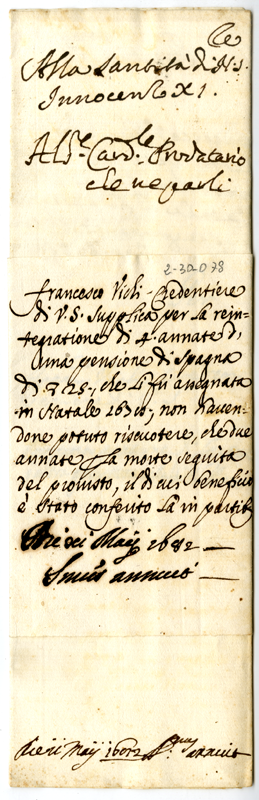 Alla Santità di N.S.
Innocentio XI.
Al S.r Card.le Prodatario
che ne parli
2-30-078
Francesco Vidi Credentiere
di V.S. supplica per la rein=
tegratione di 4. annate d'
una pensione di Spagna
di 25, che li fù assegnata
in Natale 16; non haven=
done potuto riscuotere, che due
annate, la morte seguita
del provisto, il di cui beneficio
è stato conferito là in partib
Die xi Maij 1682
S.mus annuit
die ii Maij 1682 annuit